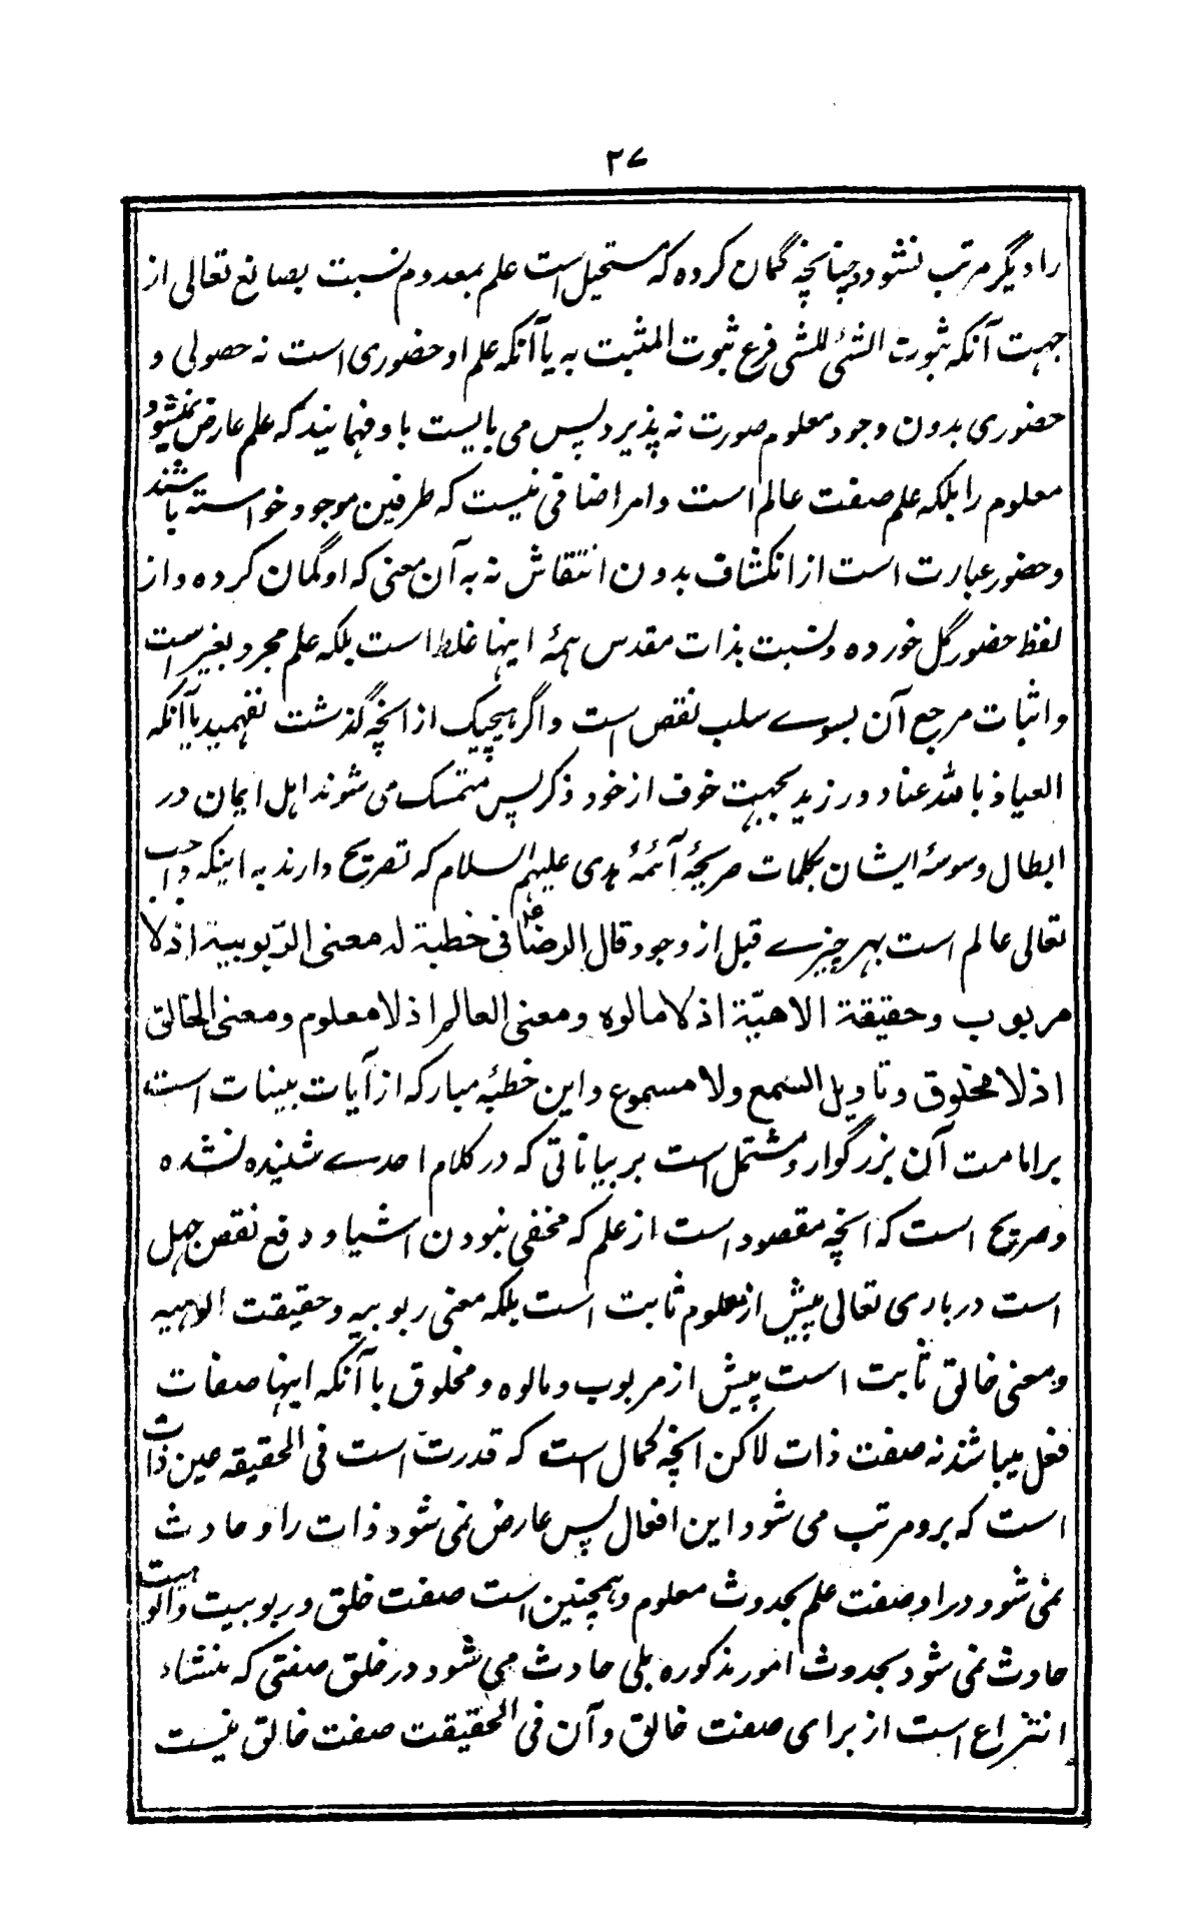 ۲۷
را دیگر مرتب نشود چنانچه گمان کرده که مستحیل است علم بمعدوم نسبت بصانع تعالی از
جهت آنکه ثبوت الشئ للشی فرع ثبوت المثبت به یا آنکه علم او حضوری است نه حصولی و
حضوری بدون وجود معلوم صورت نه پذیرد پس می بایست باو فهمانیند که علم عارض نمیشود
معلوم را بلکه علم صفت عالم است و امر اضافی نیست که طرفین موجود خواسته باشند
و حضور عبارت است از انکشاف بدون انتقاش نه به آن معنی که او گمان کرده و از
لفظ حضور گل خورده و نسبت بذات مقدس همۀ اینها غلط است بلکه علم مجرد بغیر است
و اثبات مرجع آن بسوے سلب نقص است و اگر هیچیک از انچه گذشت نفهمید یا آنکه
العیاذ بالله عناد ورزید بجهت خوف از خود ذکر پس متمسک می شوند اهل ایمان در
ابطال وسوسۀ ایشان بکلمات صریحۀ آئمۀ هدی علیهم السلام که تصریح دارند به اینکه واجب
تعالی عالم است بهر چیزے قبل از وجود قال الرضا ع فی خطبة له معنی الرّبوبیة اذ لا
مربوب و حقیقة الاهیّة اذ لا مالوه و معنی العالم اذ لا معلوم و معنی الخالق
اذ لا مخلوق و تاویل السّمع و لا مسموع و این خطبۀ مبارکه از آیات بینات است
بر امامت آن بزرگوار و مشتمل است بر بیاناتی که در کلام احدے شنیده نشده
و صریح است که انچه مقصود است از علم که مخفی نبودن اشیا و دفع نقص جهل
است در باری تعالی پیش از معلوم ثابت است بلکه معنی ربوبیه و حقیقت الوهیه
و معنی خالق ثابت است پیش از مربوب و مالوه و مخلوق با آنکه اینها صفات
فعل میباشند نه صفت ذات لاکن انچه کمال است که قدرت است فی الحقیقه عین ذات
است که برو مرتب می شود این افعال پس عارض نمی شود ذات را و حادث
نمی شود در او صفت علم بحدوث معلوم و همچنین است صفت خلق و ربوبیت و الوهیت
حادث نمی شود بحدوث امور مذکوره بلی حادث می شود در خلق صفتی که منشاء
انتزاع است از برای صفت خالق و آن فی الحقیقت صفت خالق نیست